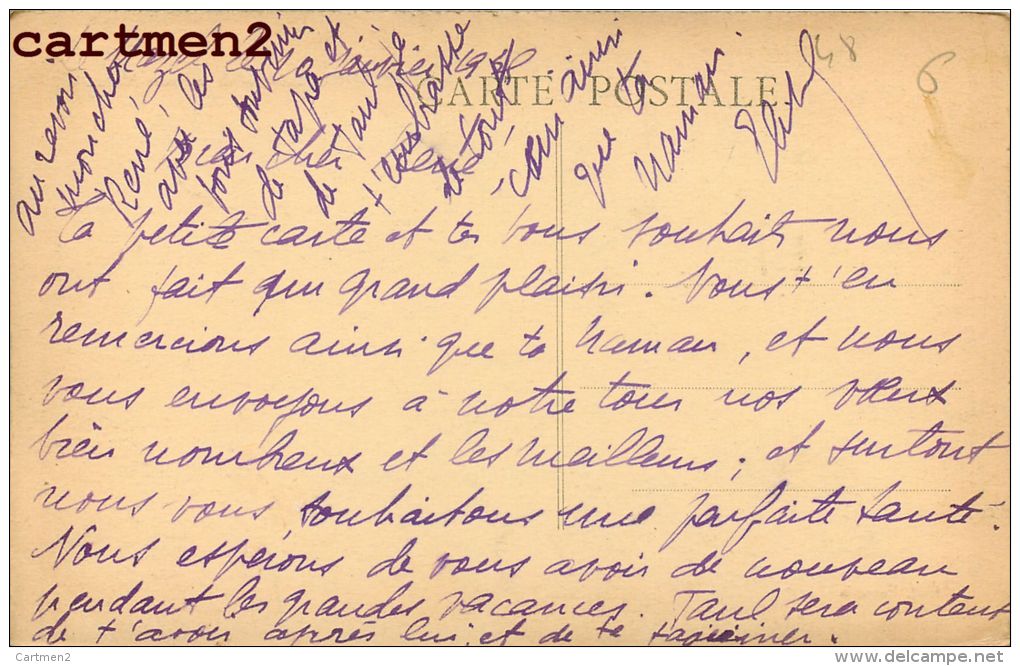 cartmen2
CARTE POSTALE
48
6
cher René
Ta petite carte et tes bons souhaits nous
ont fait grand plaisir. Nous t'en
remercions ainsi que ta Maman, et nous
vous envoyons à notre tour nos vœux
bien nombreux et les meilleurs; et surtout
nous vous souhaitons une parfaite santé.
Nous espérons de vous avoir de nouveau
pendant les grandes vacances. Paul sera content
de t'avoir après lui et de te taquiner.
au revoir
mon cher
René avec les
bons souvenirs
de Papa et
de Paul je
t'embrasse
de tout
cœur ainsi
que ta
Maman
- Cartmen2
www.delcampe.net